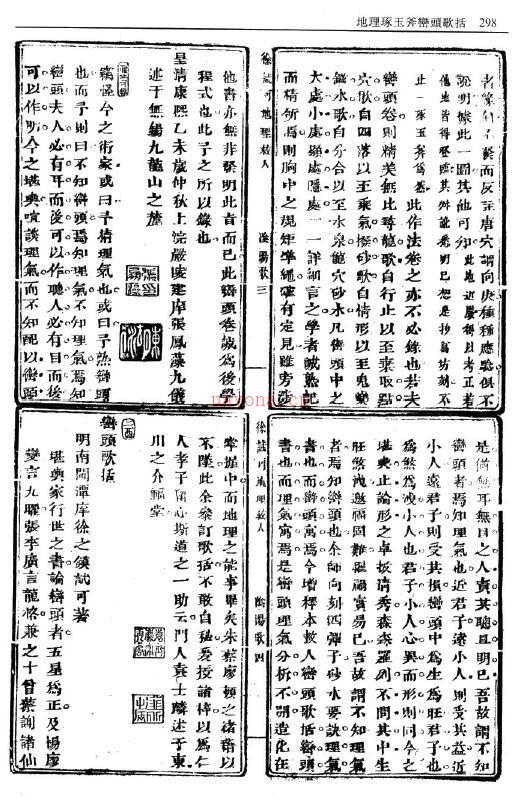 地理琢玉斧巒頭歌括 298
者篆而反在唐穴謂向庚種種應驗俱不
說明據此一圖其他可知此地近屢得以考正若
他地皆得其外龍虎明已想是抄寫坊刻不
止一琢玉斧為然此作法卷之亦不必錄也若夫
巒頭卷則精美無比尋龍歌自行止以至乘取點
穴歌自四落以至乘氣撥砂歌自情形以至鬼變
納水歌自分合以至水泉龍穴砂水凡巒頭中之
大處小處顯處隱處一一詳細言之學者誠熟記
而精焉則胸中之規矩準繩確有定見雖旁涉
徐試可地理救人 陰陽歌三
他書亦無非發明此旨而已此巒頭卷誠為後學
程式也此予之所以錄也
皇清康熙乙未歲仲秋上浣嚴陵建庠張鳳藻九儀
述于無錫九龍山之麓
竊怪今之術家或曰予精理氣也或曰予熟巒頭
也而予則曰不知巒頭焉知理氣不知理氣焉知
巒頭夫人必有耳而後可以作聰人必有目而後
可以作明今之堪輿喧談理氣而不知配以巒頭
是猶無耳無目之人責其聰且明已吾故謂不知
巒頭者焉知理氣也近君子遠小人則受其益近
小人遠君子則受其損巒頭中為生為旺君子也
為煞為洩小人也君子小人心異而形則同今之
堪輿止論形之卓拔清秀森森羅列不問其中生
旺煞洩進福罔離禍嘗易已吾故謂不知理氣
者焉知巒頭也余師向刻四彈子砂水要訣理氣
書也而巒頭寓焉今增釋本救人巒頭歌括巒頭
書也而理氣寓焉是巒頭理氣分析不朔造化在
徐試可地理救人 陰陽歌四
掌握中而地理之能事畢矣朱蔡廖頓之緒藉以
不墜此余叅訂歌括不敢自秘爰授諸梓以為仁
人孝子留心斯道之一助云門人袁士麟述于東
川之介福堂
巒頭歌括
明南閩潭庠徐之鏌試可著
堪輿家行世之書論巒頭者五星為正及楊廖
變言九曜張李廣言龍格兼之十蔡謝諸仙